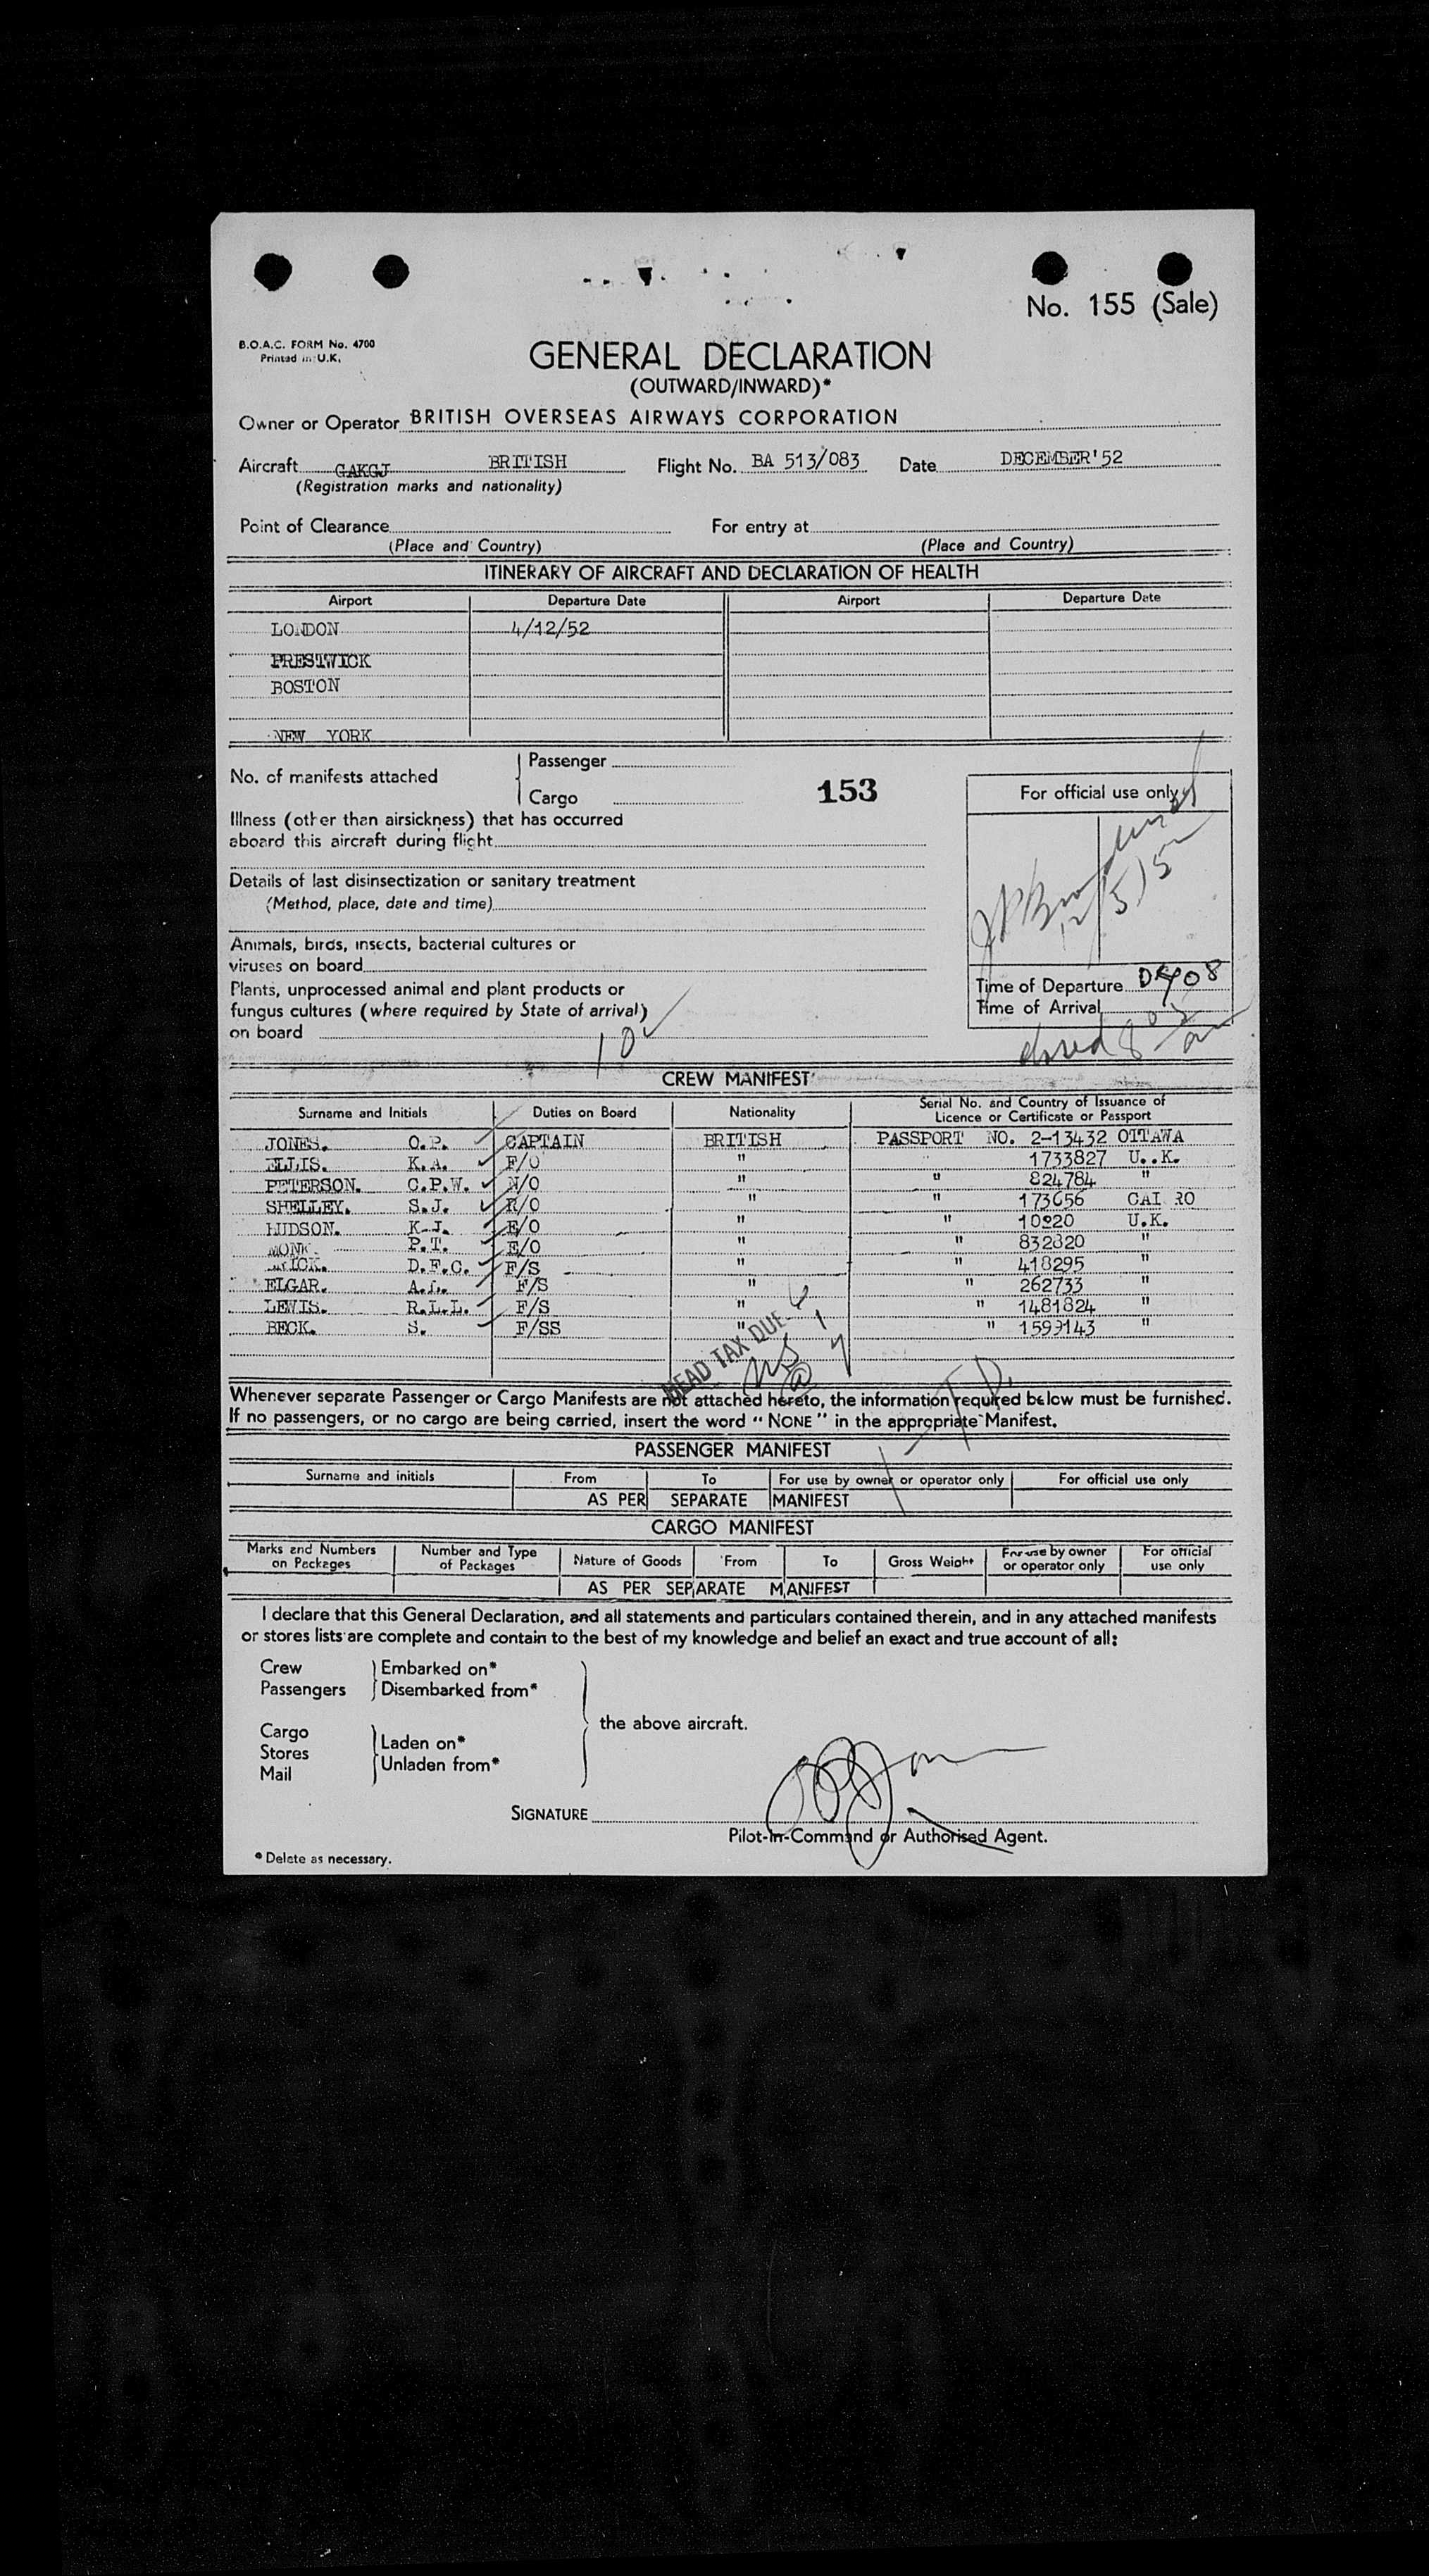 No. 155 (Sale)
B.O.A.C. FORM No. 4700
Printed in U.K.
GENERAL DECLARATION
(OUTWARD/INWARD)*
Owner or Operator BRITISH OVERSEAS AIRWAYS CORPORATION
Aircraft GAKGJ BRITISH Flight No. BA 513/083 Date DECEMBER'52
(Registration marks and nationality)
Point of Clearance For entry at
(Place and Country) (Place and Country)
ITINERARY OF AIRCRAFT AND DECLARATION OF HEALTH
Airport Departure Date Airport Departure Date
LONDON 4/12/52
PRESTWICK
BOSTON
NEW YORK
No. of manifests attached Passenger
Cargo
153
For official use only
Illness (other than airsickness) that has occurred
aboard this aircraft during flight
Details of last disinsectization or sanitary treatment
(Method, place, date and time)
12/5/52
Animals, birds, insects, bacterial cultures or
viruses on board
Plants, unprocessed animal and plant products or
fungus cultures (where required by State of arrival)
on board
Time of Departure
Time of Arrival
10
CREW MANIFEST
Surname and Initials Duties on Board Nationality Serial No. and Country of Issuance of
Licence or Certificate or Passport
JONES. O.P. CAPTAIN BRITISH PASSPORT NO. 2-13432 OTTAWA
ELLIS. K.A. F/O " 1733827 U..K.
PETERSON. C.P.W. N/O " " 824784 "
SHELLEY. S.J. R/O " " 173656 CAI RO
HUDSON. K.J. E/O " " 10220 U.K.
MONK. P.T. E/O " " 832820 "
D.F.C. F/S " " 418295 "
ELGAR. A.L. F/S " " 262733 "
LEWIS. R.L.L. F/S " " 1481824 "
BECK. S. F/SS " " 1599143 "
HEAD TAX DUE
Whenever separate Passenger or Cargo Manifests are not attached hereto, the information required below must be furnished.
If no passengers, or no cargo are being carried, insert the word "NONE" in the appropriate Manifest.
PASSENGER MANIFEST
Surname and initials From To For use by owner or operator only For official use only
AS PER SEPARATE MANIFEST
CARGO MANIFEST
Marks and Numbers on Packages Number and Type of Packages Nature of Goods From To Gross Weight For use by owner or operator only For official use only
AS PER SEPARATE MANIFEST
I declare that this General Declaration, and all statements and particulars contained therein, and in any attached manifests
or stores lists are complete and contain to the best of my knowledge and belief an exact and true account of all:
Crew Embarked on*
Passengers Disembarked from*
the above aircraft.
Cargo Laden on*
Stores
Mail Unladen from*
SIGNATURE
Pilot-in-Command or Authorised Agent.
* Delete as necessary.